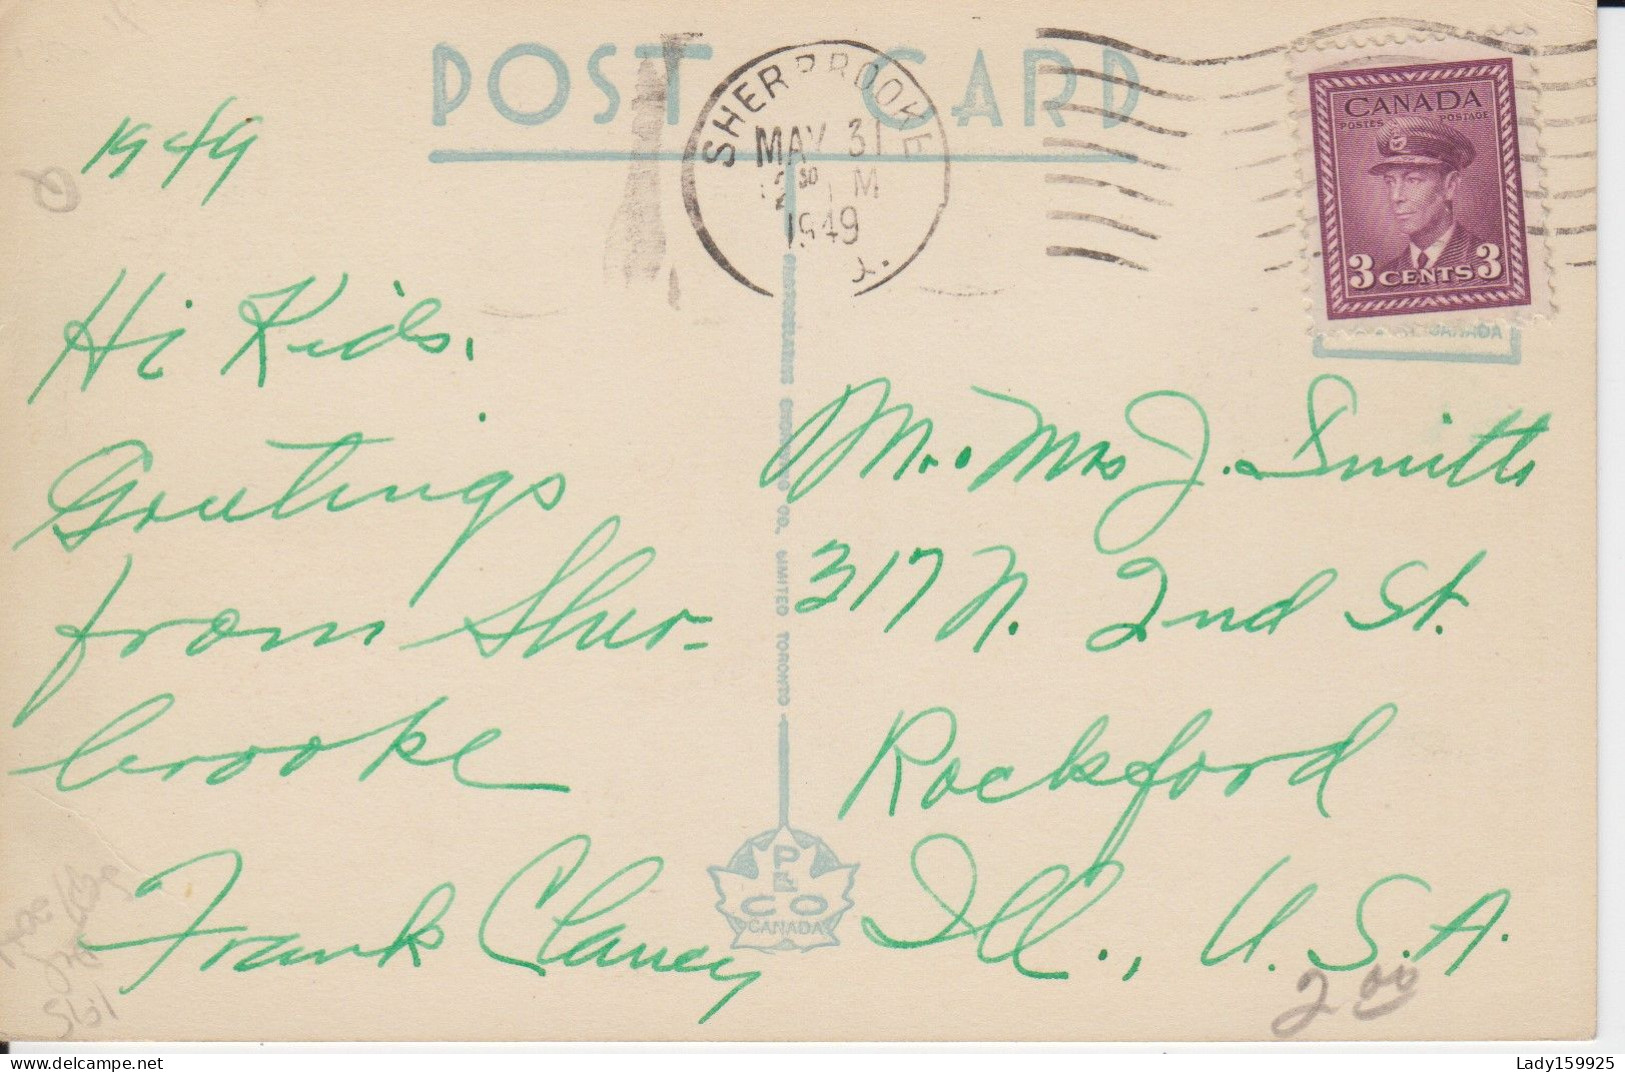 POST CARD
SHERBROOKE
MAY 31
30
M
1949
CANADA
POSTES POSTAGE
3 CENTS 3
CANADA
1949
Hi Kids.
Greetings
from Sher-
brooke
Frank Claney
Mr. Mrs J. Smith
317 N. 2nd St.
Rockford
Ill., U.S.A.
CO. LIMITED TORONTO
PECO
CANADA
2 00
delcampe.net
Lady159925